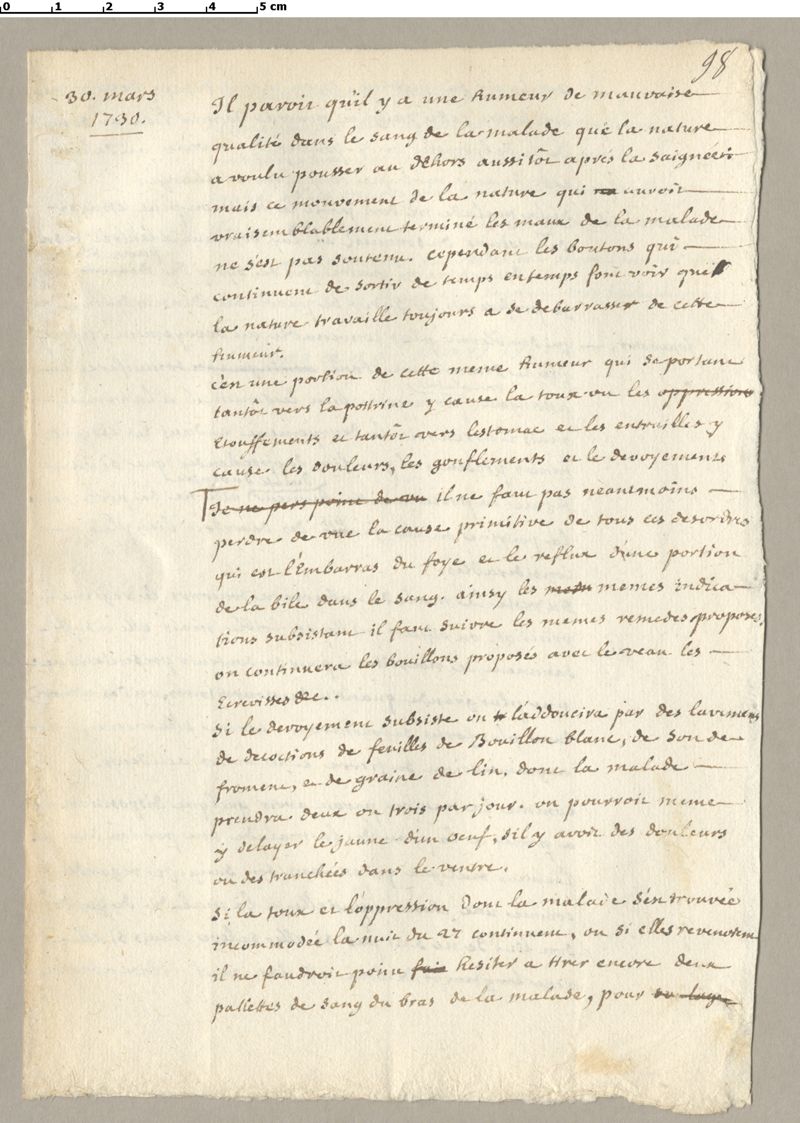 0 1 2 3 4 5 cm
98
30. mars
1730.
Il paroit qu'il y a une humeur de mauvaise
qualité dans le sang de la malade que la nature
a voulu pousser au déhors aussitôt aprés la saignée:
mais ce mouvement de la nature qui auroit
vraisemblablement terminé les maux de la malade
ne s'est pas soutenu. cependant les boutons qui
continuent de sortir de temps en temps font voir que
la nature travaille toujours a se debarrasser de cette
humeur.
c'est une portion de cette meme humeur qui se portant
tantôt vers la poitrine y cause la toux ou les oppressions
etouffements et tantôt vers lestomac et les entrailles y
cause les douleurs, les gonflements et le devoyements
Je ne pers point de vu il ne faut pas neantmoins
perdre de vue la cause primitive de tous ces desordres
qui est l'Embarras du foye et le reflux d'une portion
de la bile dans le sang. ainsy les memes indica
tions subsistant il faut suivre les memes remedes proposés.
on continuera les bouillons proposés avec le veau les
Ecrevisses &c..
Si le devoyement subsiste on l'addoucira par des lavements
de decoctions de feuilles de Bouillon blanc, de son de
froment, et de graine de lin, dont la malade
prendra deux ou trois par jour. on pourroit meme
y delayer le jaune d'un oeuf, s'il y avoit des douleurs
ou des tranchées dans le ventre.
Si la toux et l'oppression dont la malade s'en trouvée
incommodée la nuit du 27 continuent, ou si elles revenoient
il ne faudroit point hesiter a tirer encore deux
pallettes de sang du bras de la malade, pour